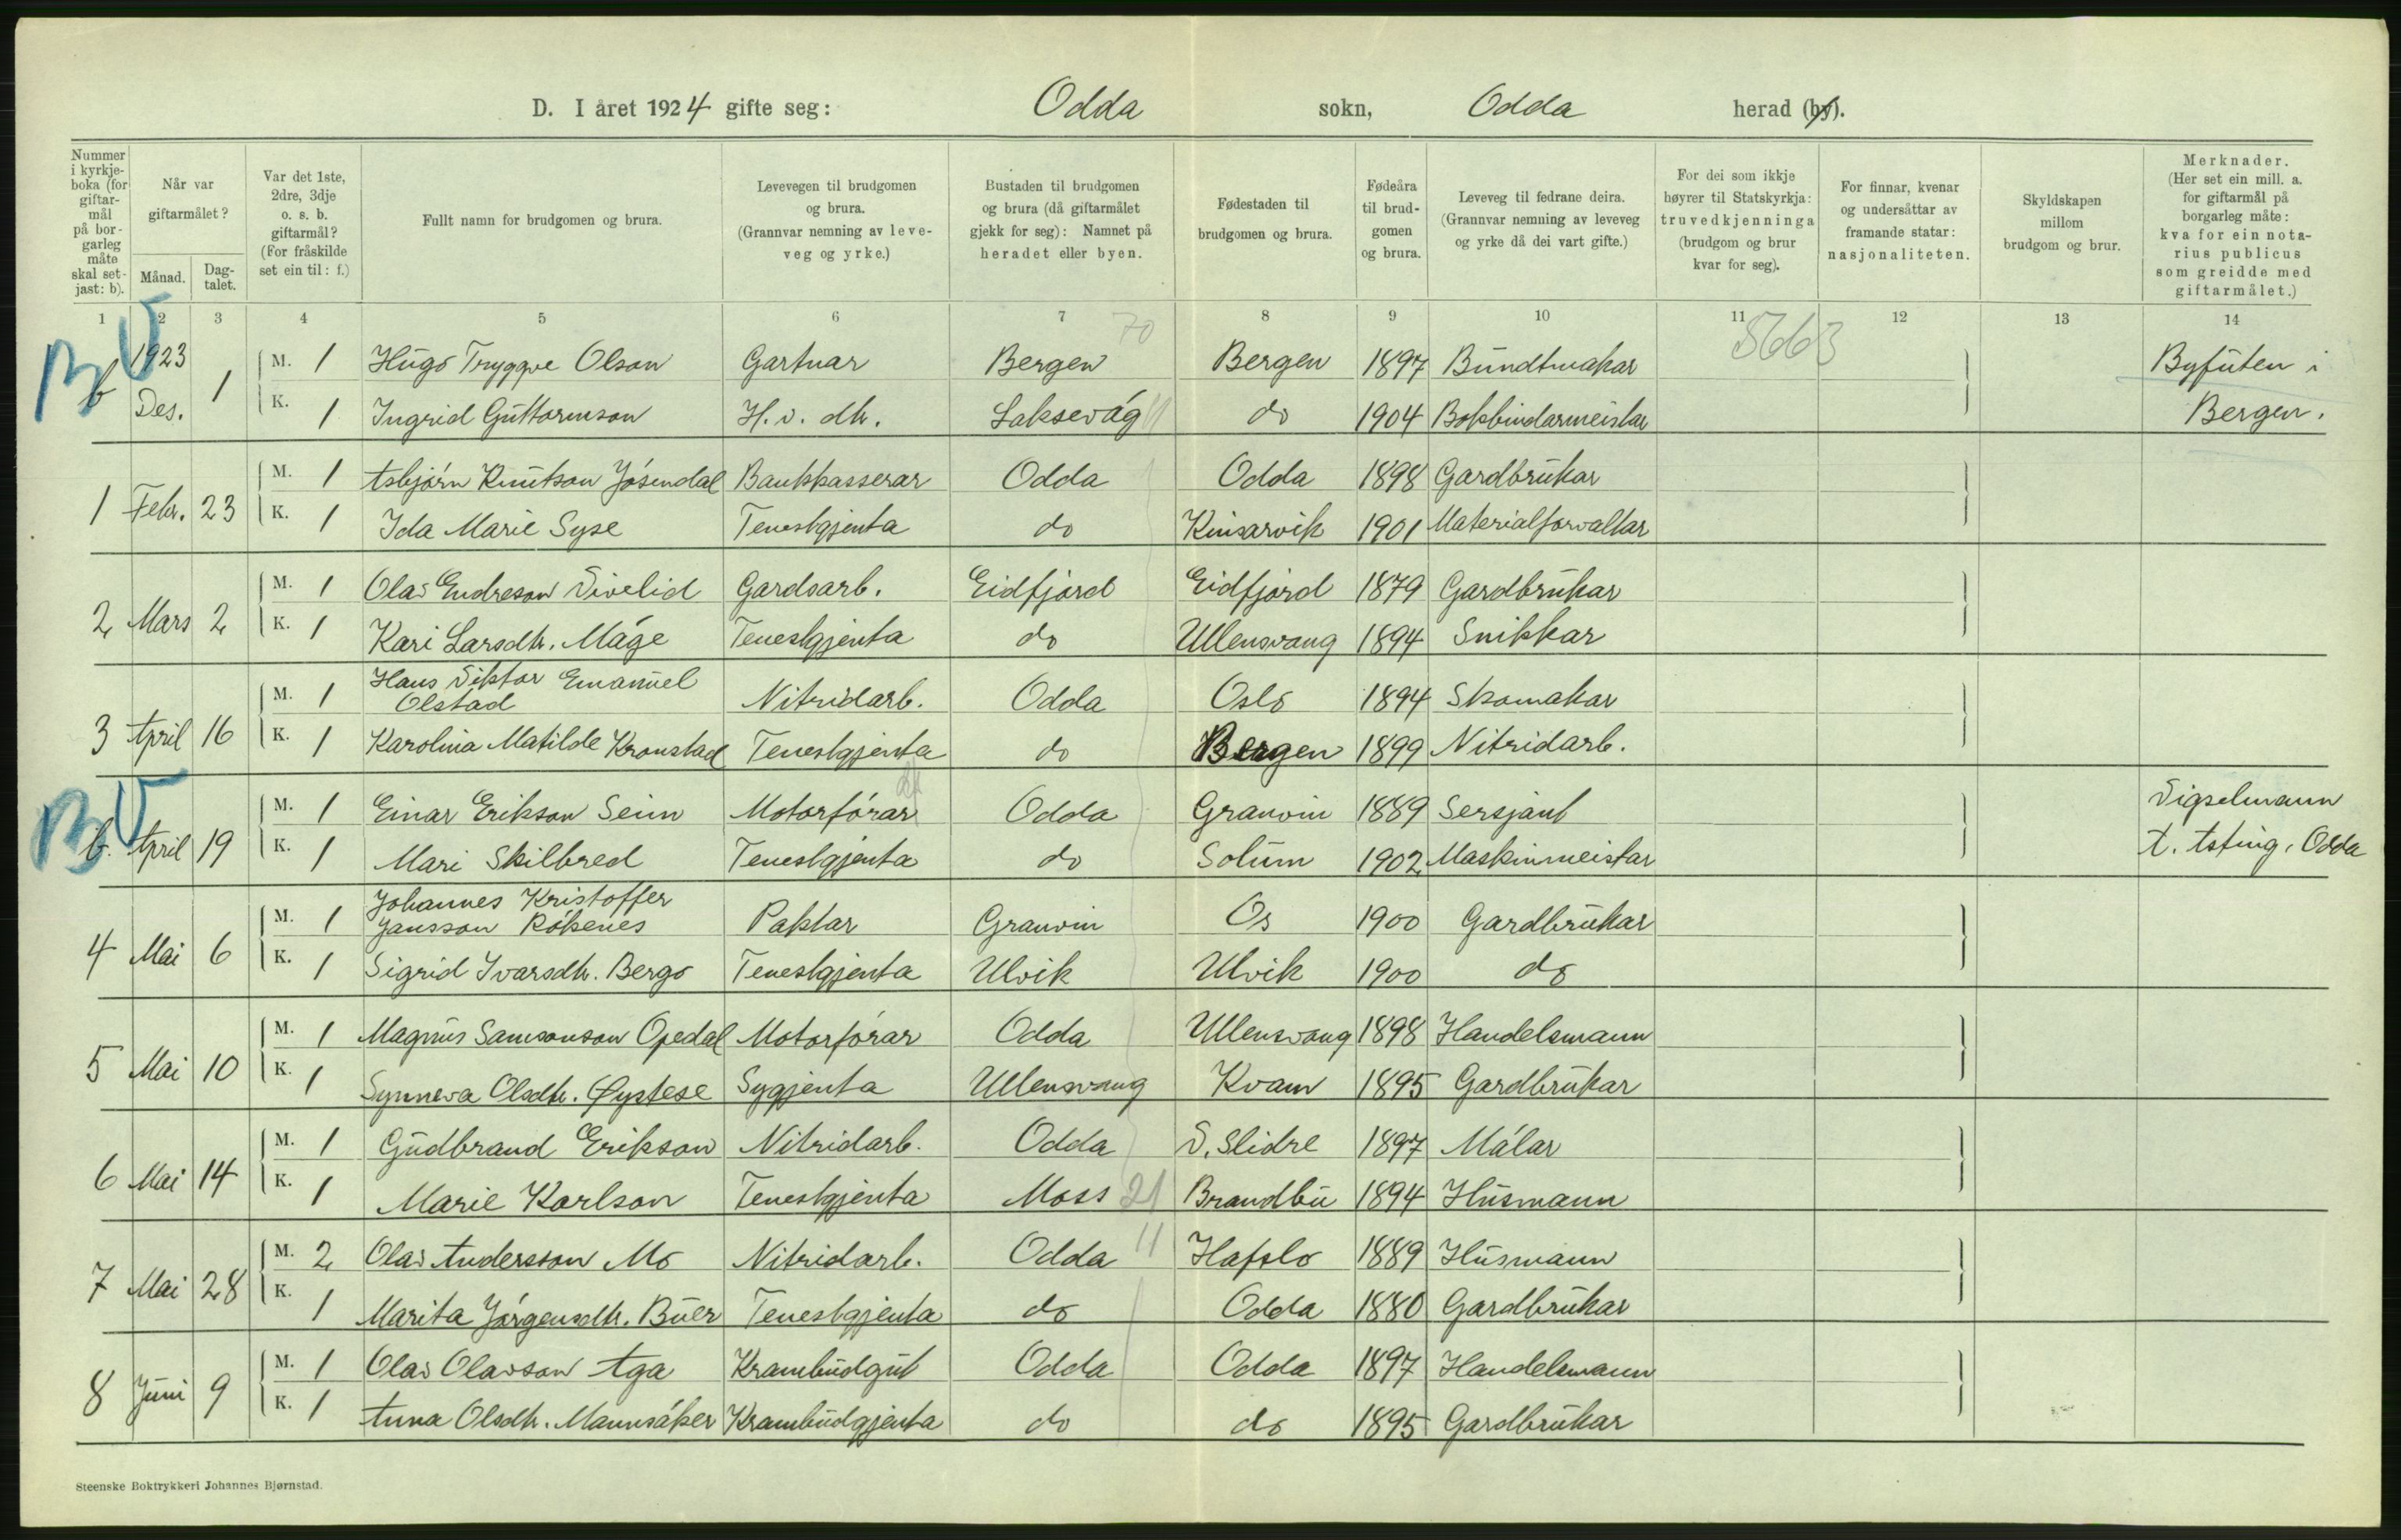 D. I året 1924 gifte seg: Odda sokn, Odda herad (by).
Nummer i kyrkje-boka (for giftar-mål på bor-garleg måte skal set-jast: b).
Når var giftarmålet?
Månad.
Dag-talet.
Var det 1ste, 2dre, 3dje o. s. b. giftarmål? (For fråskilde set ein til: f.)
Fullt namn for brudgomen og brura.
Levevegen til brudgomen og brura. (Grannvar nemning av leve-veg og yrke.)
Bustaden til brudgomen og brura (då giftarmålet gjekk for seg): Namnet på heradet eller byen.
Fødestaden til brudgomen og brura.
Fødeåra til brud-gomen og brura.
Leveveg til fedrane deira. (Grannvar nemning av leveveg og yrke då dei vart gifte.)
For dei som ikkje høyrer til Statskyrkja: truvedkjenninga (brudgom og brur kvar for seg).
For finnar, kvenar og undersåttar av framande statar: nasjonaliteten.
Skyldskapen millom brudgom og brur.
Merknader. (Her set ein mill. a. for giftarmål på borgarleg måte: kva for ein nota-rius publicus som greidde med giftarmålet.)
1 2 3 4 5 6 7 8 9 10 11 12 13 14
70 5663
BV
b 1923 Des. 1 M. 1 Hugo Tryggve Olson Gartnar Bergen Bergen 1897 Bundtmakar Byfuten i
K. 1 Ingrid Guttormson H. v. dh. Laksevåg do 1904 Bokbindarmeistar Bergen.
1 Febr. 23 M. 1 Asbjørn Knutson Jøsendal Bankkasserar Odda Odda 1898 Gardbrukar
K. 1 Ida Marie Syse Tenestgjenta do Kinsarvik 1901 Materialforvaltar
2 Mars 2 M. 1 Olav Endreson Sivelid Gardsarb. Eidfjord Eidfjord 1879 Gardbrukar
K. 1 Kari Larsdh. Måge Tenestgjenta do Ullensvang 1894 Snikkar
3 April 16 M. 1 Hans Viktor Emanuel
Olstad Nitridarb. Odda Oslo 1894 Skomakar
K. 1 Karolina Matilde Kronstad Tenestgjenta do Bergen 1899 Nitridarb.
BV
b. April 19 M. 1 Einar Erikson Seim Motorførar Odda Granvin 1889 Sersjant Vigselmann
K. 1 Mari Skilbred Tenestgjenta do Solum 1902 Maskinmeistar A. Asting, Odda
4 Mai 6 M. 1 Johannes Kristoffer
Jansson Røkenes Paktar Granvin Os 1900 Gardbrukar
K. 1 Sigrid Ivarsdh. Bergo Tenestgjenta Ulvik Ulvik 1900 do
5 Mai 10 M. 1 Magnus Samsonson Opedal Motorførar Odda Ullensvang 1898 Handelsmann
K. 1 Synneva Olsdh. Øystese Sygjenta Ullensvang Kvam 1895 Gardbrukar
6 Mai 14 M. 1 Gudbrand Erikson Nitridarb. Odda V. Slidre 1897 Målar
K. 1 Marie Karlson Tenestgjenta Moss 21 Brandbu 1894 Husmann
7 Mai 28 M. 2 Olav Andersson Mo Nitridarb. Odda 11 Hafslo 1889 Husmann
K. 1 Marita Jørgensdh. Buer Tenestgjenta do Odda 1880 Gardbrukar
8 Juni 9 M. 1 Olav Olavson Aga Krambudgut Odda Odda 1897 Handelsmann
K. 1 Anna Olsdh. Mannsåker Krambudgjenta do do 1895 Gardbrukar
Steenske Boktrykkeri Johannes Bjørnstad.